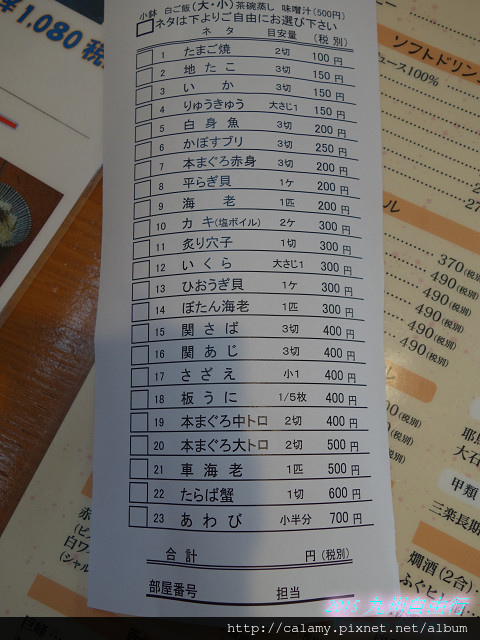 小鉢 白ご飯(大・小)茶碗蒸し 味噌汁(500円)
ネタは下よりご自由にお選び下さい
ネタ 目安量 (税別)
1 たまご焼 2切 100円
2 地たこ 3切 150円
3 いか 3切 150円
4 りゅうきゅう 大さじ1 150円
5 白身魚 3切 200円
6 かぼすブリ 3切 250円
7 本まぐろ赤身 3切 200円
8 平らぎ貝 1ケ 200円
9 海老 1匹 200円
10 カキ(塩ボイル) 2ケ 300円
11 炙り穴子 1切 300円
12 いくら 大さじ1 300円
13 ひおうぎ貝 1ケ 300円
14 ぼたん海老 1匹 300円
15 関さば 3切 400円
16 関あじ 3切 400円
17 さざえ 小1 400円
18 板うに 1/5枚 400円
19 本まぐろ中トロ 2切 400円
20 本まぐろ大トロ 2切 500円
21 車海老 1匹 500円
22 たらば蟹 1切 600円
23 あわび 小半分 700円
合計 円(税別)
部屋番号 担当
¥1,080 税
ソフトドリン
ュース100%
ル
370(税別)
490(税別)
490(税別)
490(税別)
490(税別)
490(税別)
(税別)
(税別)
大石
甲類
三楽長期
燗酒(2合)
ふぐヒレ
赤
白ワ
(シャル
http://calamy.pixnet.net/album